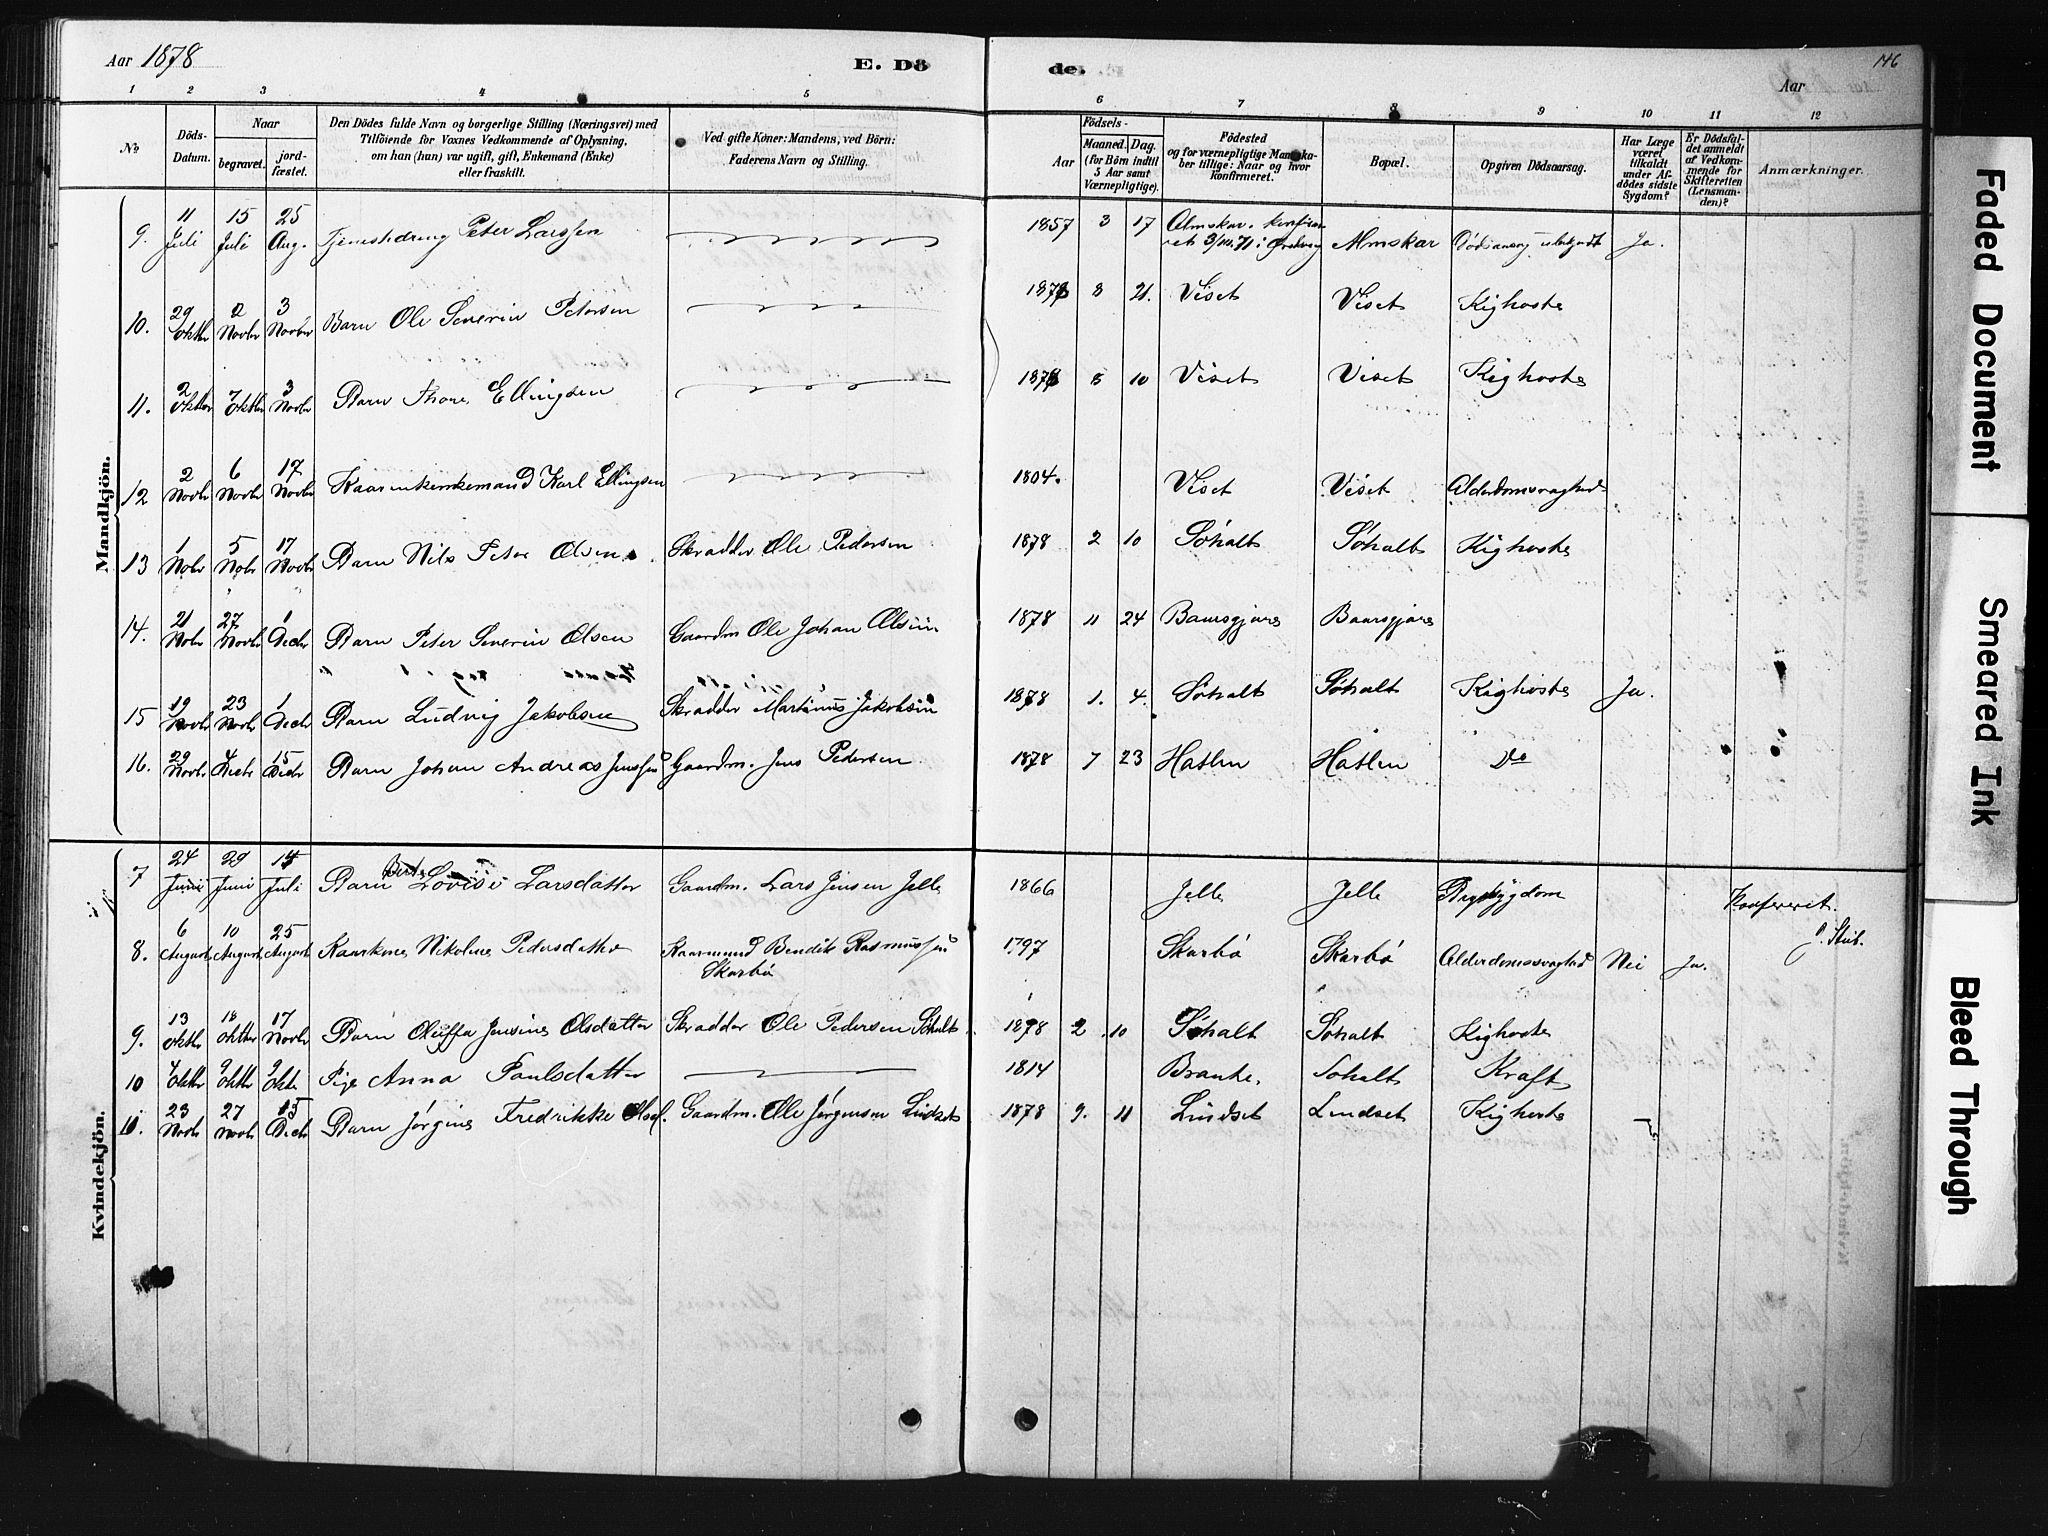 Aar 1878
E. Dö
de.
Aar
146
1 2 3 4 5 6 7 8 9 10 11 12
No
Döds-Datum.
Naar
begravet.
jord-fæstet.
Den Dödes fulde Navn og borgerlige Stilling (Næringsvei) med
Tilföiende for Voxnes Vedkommende af Oplysning,
om han (hun) var ugift, gift, Enkemand (Enke)
eller fraskilt.
Ved gifte Koner: Mandens, ved Börn:
Faderens Navn og Stilling.
Födsels-
Aar
Maaned. Dag.
(for Börn indtil
5 Aar samt
Værnepligtige).
Födested
og for værnepligtige Mandska-
ber tillige: Naar og hvor
Konfirmeret.
Bopæl.
Opgiven Dödsaarsag.
Har Læge
været
tilkaldt
under Af-
dödes sidste
Sygdom?
Er Dödsfal-
det anmeldt
af Vedkom-
mende for
Skifteretten
(Lensman-
den)?
Anmærkninger.
Mandkjön.
9. 11 Juli 15 Juli 25 Aug. Tjenestedreng Peter Larssen 1857 3 17 Almskar. Almskar Ja.
10. 29 Oktbr 2 Novbr 3 Novbr Barn Ole Severin Petersen 1878 8 21. Viset Viset Kighoste
11. 2 Oktbr 7 Oktbr 3 Novbr Barn Thore Ellingsen 1878 8 10 Viset Viset Kighoste
12 2 Novbr 6 Novbr 17 Novbr Kaarenkemand Karl Ellingsen 1804. Viset Viset Alderdomssvaghed
13 1 Nobr 5 Nobr 17 Novbr Barn Nils Peter Olsen. Skradder Ole Pedersen 1878 2 10 Söholt Söholt Kighoste
14. 21 Nobr 27 Novbr 1 Decbr Barn Peter Severin Olsen Gaardm Ole Johan Olsen 1878 11 24 Baursgjære Baursgjære
15 19 Novbr 23 Novbr 1 Decbr Barn Ludvig Jakobsen Skradder Martinus Jakobsen 1878 1. 4. Söholt Söholt Kighoste Ja.
16. 29 Novbr 4 Decbr 15 Decbr Barn Johan Andreas Jenssen Gaardm. Jens Pedersen 1878 7 23 Hatlen Hatlen Do
Kvindekjön.
7 24 Juni 29 Juni 14 Juli Barn Berte Lovise Larsdatter Gaardm. Lars Jensen Jelle 1866 Jelle Jelle Brystsygdom Konfereret.
8. 6 August 10 August 25 August Kaarkone Nikoline Pedersdatter Kaarmand Bendik Rasmussen
Skarbö 1797 Skarbö Skarbö Alderdomssvaghed Nei Ja.
9. 13 Oktbr 18 Oktbr 17 Novbr Barn Oluffa Jensine Olsdatter Skradder Ole Pedersen Söholt 1878 2 10 Söholt Söholt Kighoste
10 4 Oktbr 9 Oktbr 9 Oktb Pige Anna Paulsdatter 1814 Branke. Söholt Kræft
11. 23 Novbr 27 Novbr 15 Decbr Barn Jørgine Fredrikke Olsd. Gaardm. Ole Jørgensen Lindset 1878 9. 11 Lindset Lindset Kighoste
Faded Document
Smeared Ink
Bleed Through